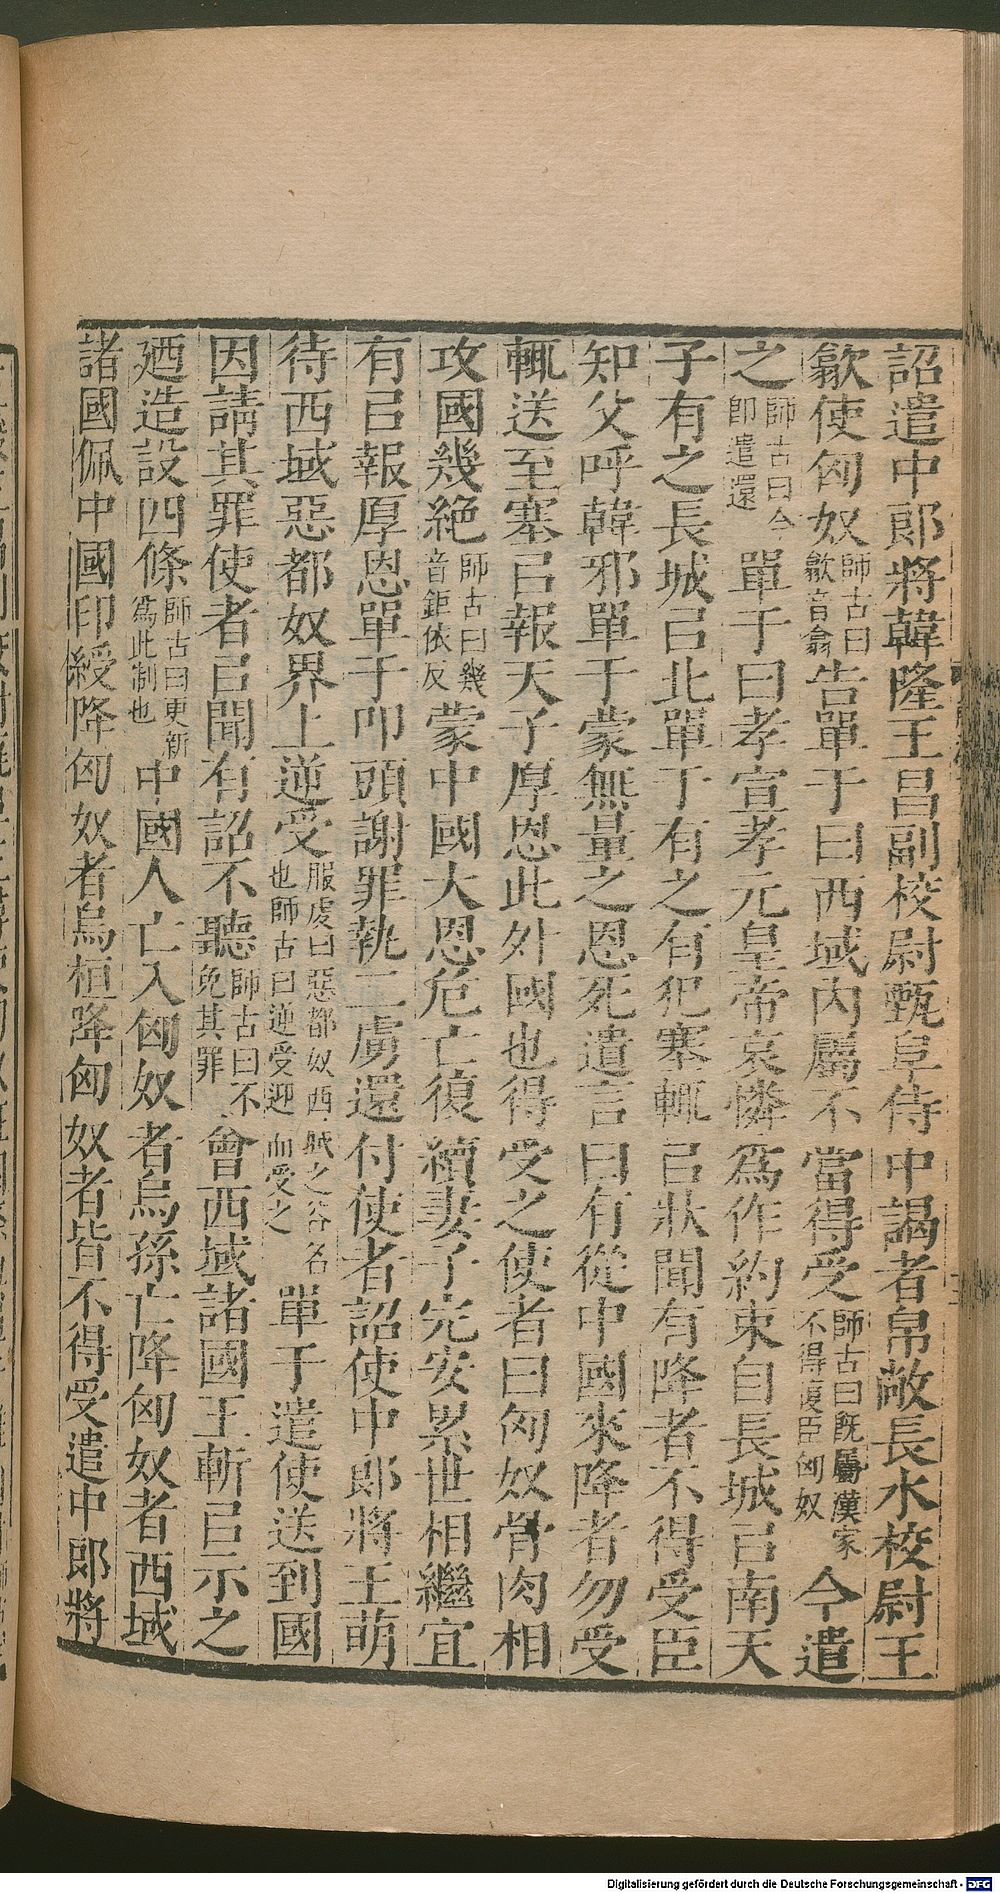 詔遣中郎將韓隆王昌副校尉甄阜侍中謁者帛敞長水校尉王
歙使匈奴師古曰歙音翕告單于曰西域內屬不當得受師古曰旣屬漢家不得復臣匈奴今遣
之師古曰今卽遣還單于曰孝宣孝元皇帝哀憐爲作約束自長城㠯南天
子有之長城㠯北單于有之有犯塞輒㠯狀聞有降者不得受臣
知父呼韓邪單于蒙無量之恩死遺言曰有從中國來降者勿受
輒送至塞㠯報天子厚恩此外國也得受之使者曰匈奴骨肉相
攻國幾絶師古曰幾音鉅依反蒙中國大恩危亡復續妻子完安累世相繼宜
有㠯報厚恩單于叩頭謝罪執二虜還付使者詔使中郎將王萌
待西域惡都奴界上逆受服虔曰惡都奴西域之谷名也師古曰逆受迎而受之單于遣使送到國
因請其罪使者㠯聞有詔不聽師古曰不免其罪會西域諸國王斬㠯示之
廼造設四條師古曰更新爲此制也中國人亡入匈奴者烏孫亡降匈奴者西域
諸國佩中國印綬降匈奴者烏桓降匈奴者皆不得受遣中郎將
Digitalisierung gefördert durch die Deutsche Forschungsgemeinschaft - DFG